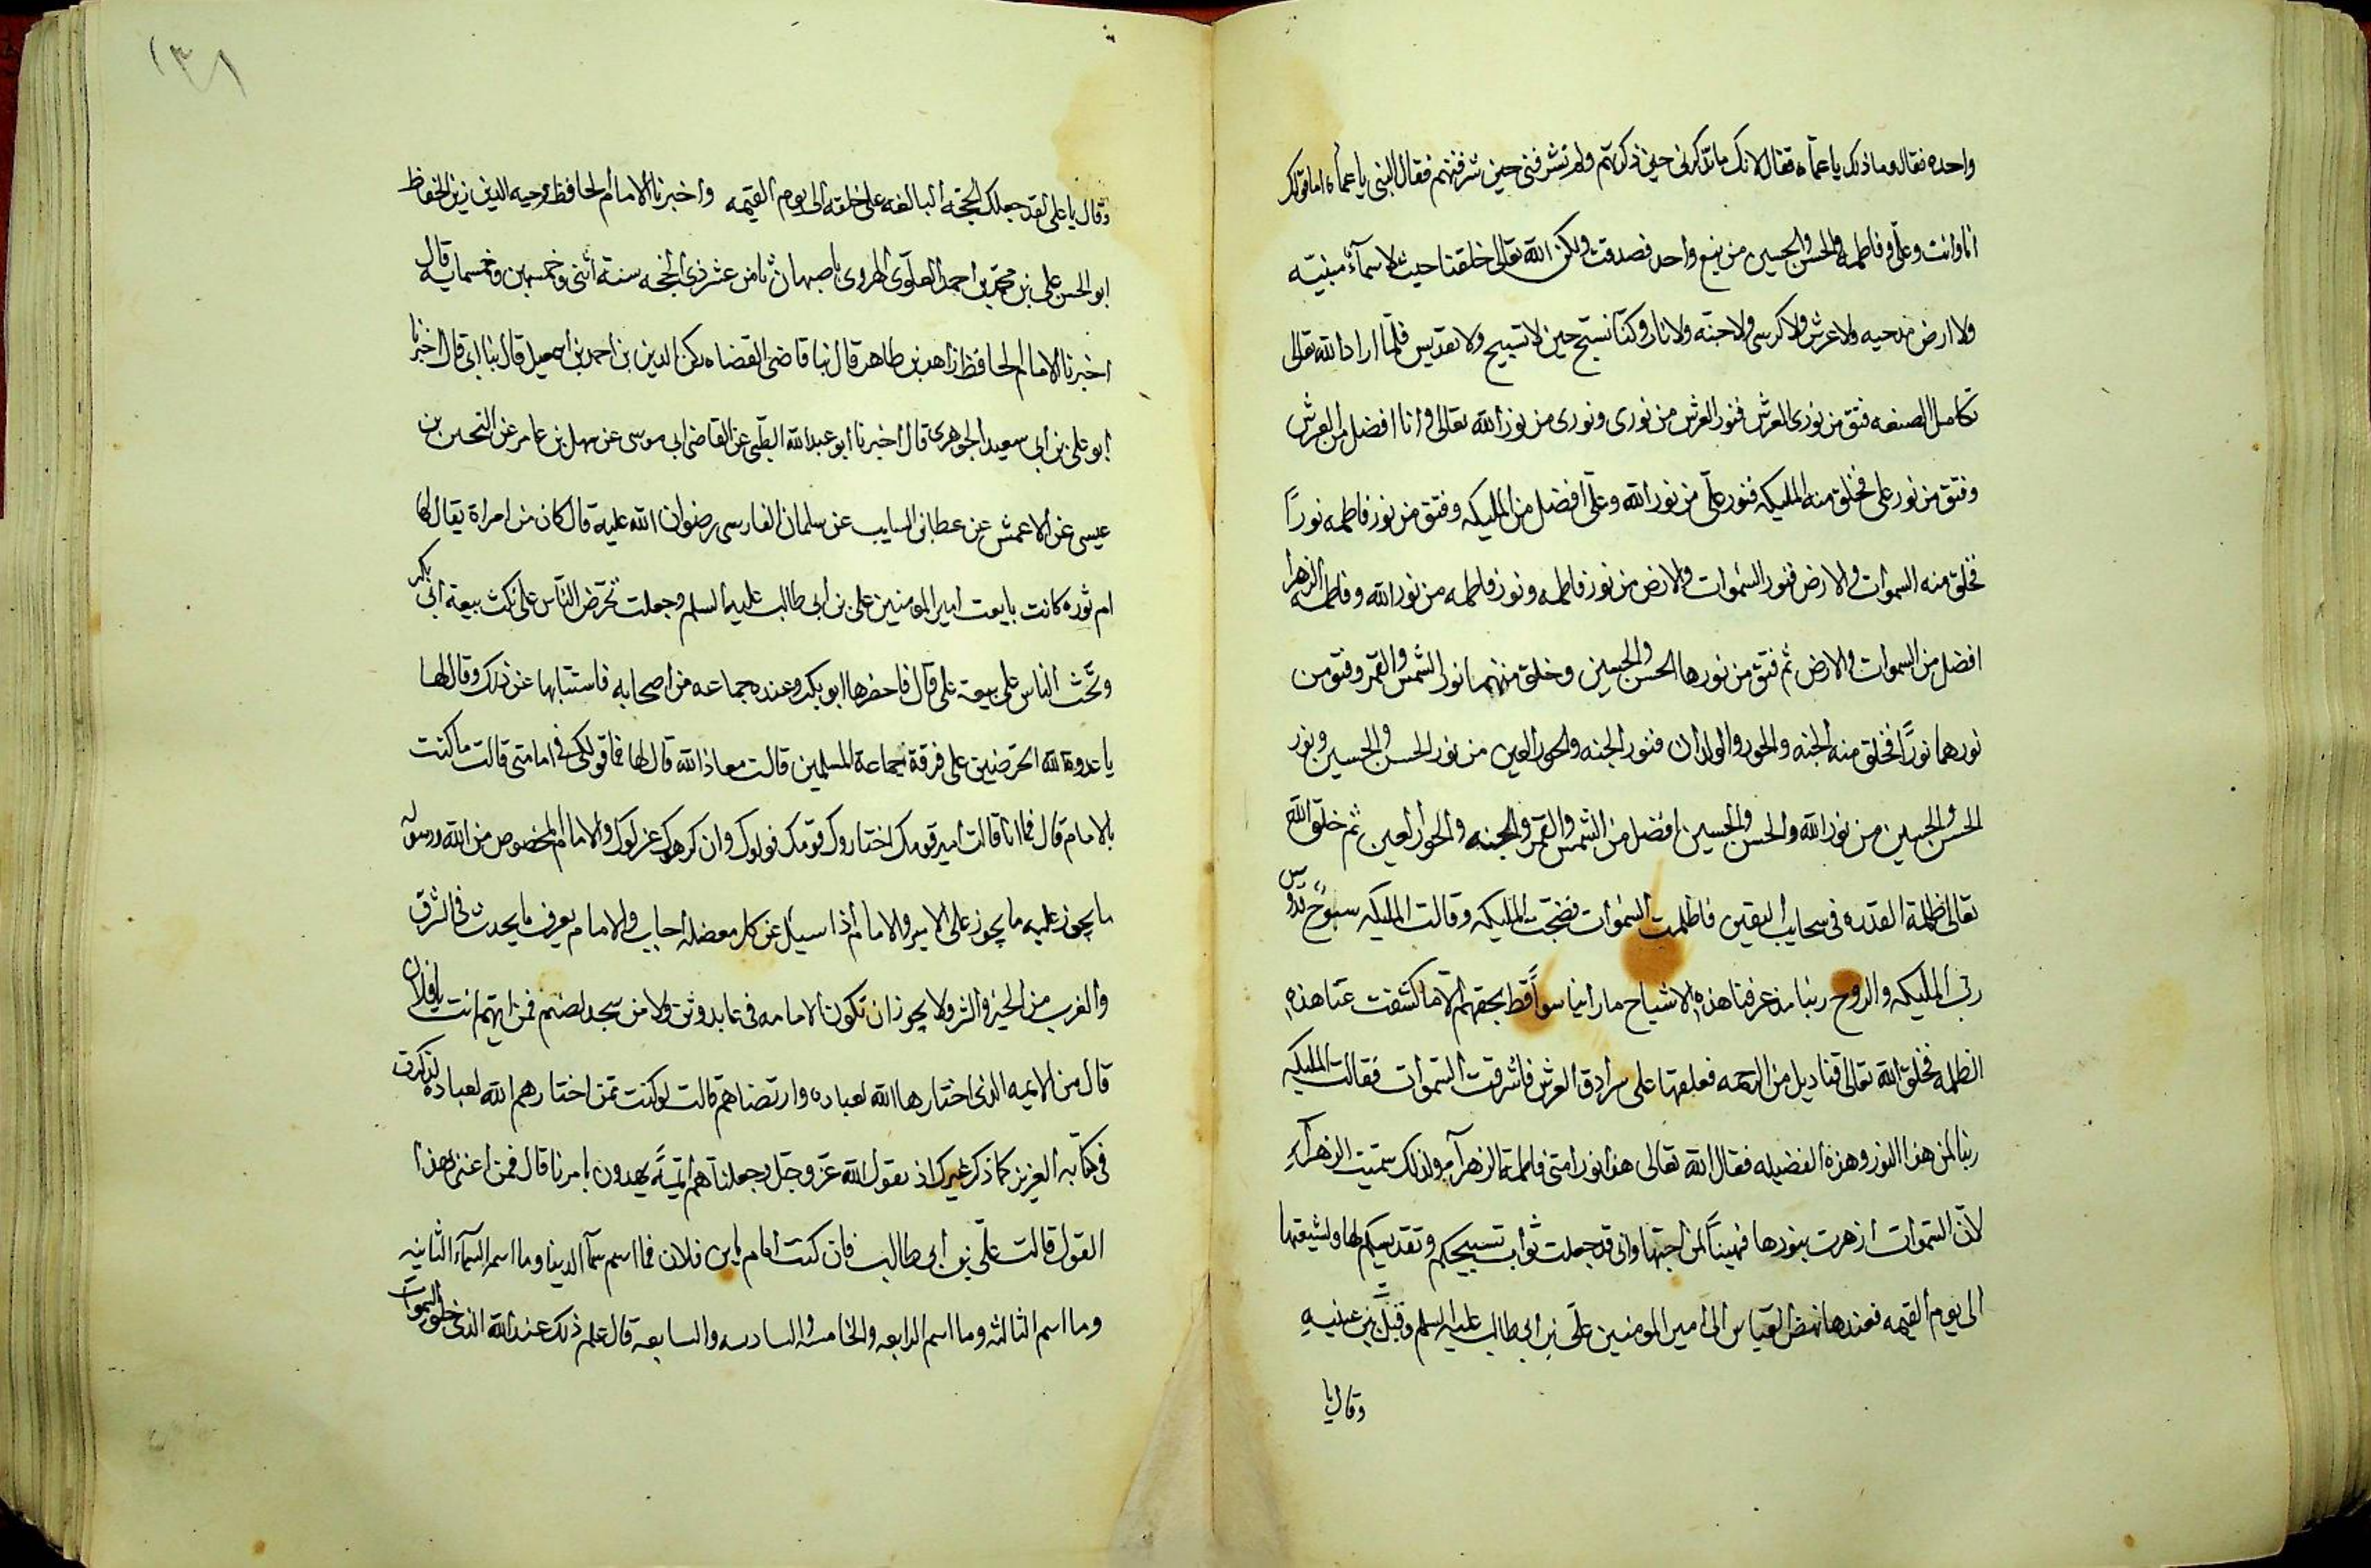 واحده فقال وما ذلك يا عماه فقال لانك ما تذكرنى حين ذكرتهم ولم تشرفنى حين شرفتهم فقال النبى يا عماه اما قولك
انا وانت وعلى وفاطمه والحسن والحسين من نبع واحد فصدقت ولكن الله تعالى خلقنا حيث لا سمآء مبنيّه
ولا ارض مدحيه ولا عرش ولا كرسى ولا جنّه ولا نار وكنّا نسبّح حين لا تسبيح ولا تقديس فلمّا اراد الله تعالى
تكامل الصنعه فتق من نورى العرش فنور العرش من نورى ونورى من نور الله تعالى وانا افضل من العرش
وفتق من نور على فخلق منه المليكه فنور علّى من نور الله وعلّى افضل من المليكه وفتق من نور فاطمه نورًا
فخلق منه السموات والارض فنور السموات والارض من نور فاطمه ونور فاطمه من نور الله وفاطمه الزهرا
افضل من السموات والارض ثم فتق من نورها الحسن والحسين وخلق منهما نور الشمس والقمر وفتق من
نورهما نورًا فخلق منه الجنه والحور والولدان فنور الجنه والحور العين من نور الحسن والحسين ونور
الحسن والحسين من نور الله والحسن والحسين افضل من الشمس والقمر والجنه والحور العين ثم خلق الله
تعالى ظلمة القدره فى سحايب اليقين فاظلمت السموات فضجّت المليكه وقالت المليكه سبّوحٌ قدّوس
ربّ المليكه والروح ربنا منذ عرفنا هذه الاشباح ما راينا سواً قط بحقهم الا ما كشفت عنّا هذه
الظلمه فخلق الله تعالى قناديل من الرحمه فعلقها على سرادق العرش فاشرقت السموات فقالت المليكه
ربنا لمن هذا النور وهذه الفضيله فقال الله تعالى هذا نور امتى فاطمة الزهرآء ولذلك سمّيت الزهرآء
لانّ السموات ازهرت بنورها فهنيّاً لمن احبّها وانى قد جعلت ثواب تسبيحكم وتقديسكم لها ولشيعتها
الى يوم القيمه فعندها نهض العبّاس الى امير المومنين علّى بن ابى طالب عليه السلم وقبّل بين عينيه
وقال يا
١٣٨
وقال يا على لقد جعلك الحجّة البالغه على خلقه الى يوم القيمه واخبرنا الامام الحافظ وجيه الدين زين الحفاظ
ابو الحسن على بن محمّد بن احمد العلوّى الهروى باصبهان ثامن عشر ذى الحجّه سنة اثنى وخمسين وخمسمايه قال
اخبرنا الامام الحافظ زاهد بن طاهر قال نبا قاضى القضاه ركن الدين بن احمد بن اسمعيل قال نبا ابى قال اخبرنا
ابو على بن ابى سعيد الجوهرى قال اخبرنا ابو عبد الله عن القاضى ابى موسى عن سهل بن عامر عن بن
عيسى عن الاعمش عن عطا بن السايب عن سلمان الفارسى رضوان الله عليه قال كان من امراة يقال لها
ام ثوره كانت بايعت امير المومنين على بن ابى طالب عليه السلم وجعلت تحرّض النّاس على نكث بيعة ابى بكر
وتحّث الناس على بيعة على قال فاحضرها ابو بكر وعنده جماعه من اصحابه فاستتابها عن ذلك وقال لها
يا عدوة الله اتحرّضين على فرقة جماعة المسلمين قالت معاذ الله قال لها فما قولك فى امامتى قالت ما كنت
بالامام قال فما انا قالت امير قومك اختاروك قومك فولوك وان كرهوك عزلوك والامام المخصوص من الله ورسوله
ما يجوز عليه ما يجوز على الامير والامام اذا سيل عن كل معضله اجاب والامام يعرف ما يحدث فى الشرق
والغرب من الخير والشر ولا يجوز ان تكون الامامه فى عابد وثن ولا من سجد لصنم فمن ايهم انت يا فلان
قال من الايمه الذى اختارها الله لعباده وارتضاهم قالت لو كنت ممّن اختارهم الله لعباده لذكرت
فى كتابه العزيز كما ذكر غيرك اذ يقول الله عزّ وجّل وجعلناهم ايمّةً يهدون بامرنا قال فمن اعنى بهذا
القول قالت علّى بن ابى طالب فان كنت امام يا بن فلان فما اسم سمآ الدنيا وما اسم السمآء الثانيه
وما اسم الثالثه وما اسم الرابعه والخامسه والسادسه والسابعه قال علم ذلك عند الله الذى خلق السموات